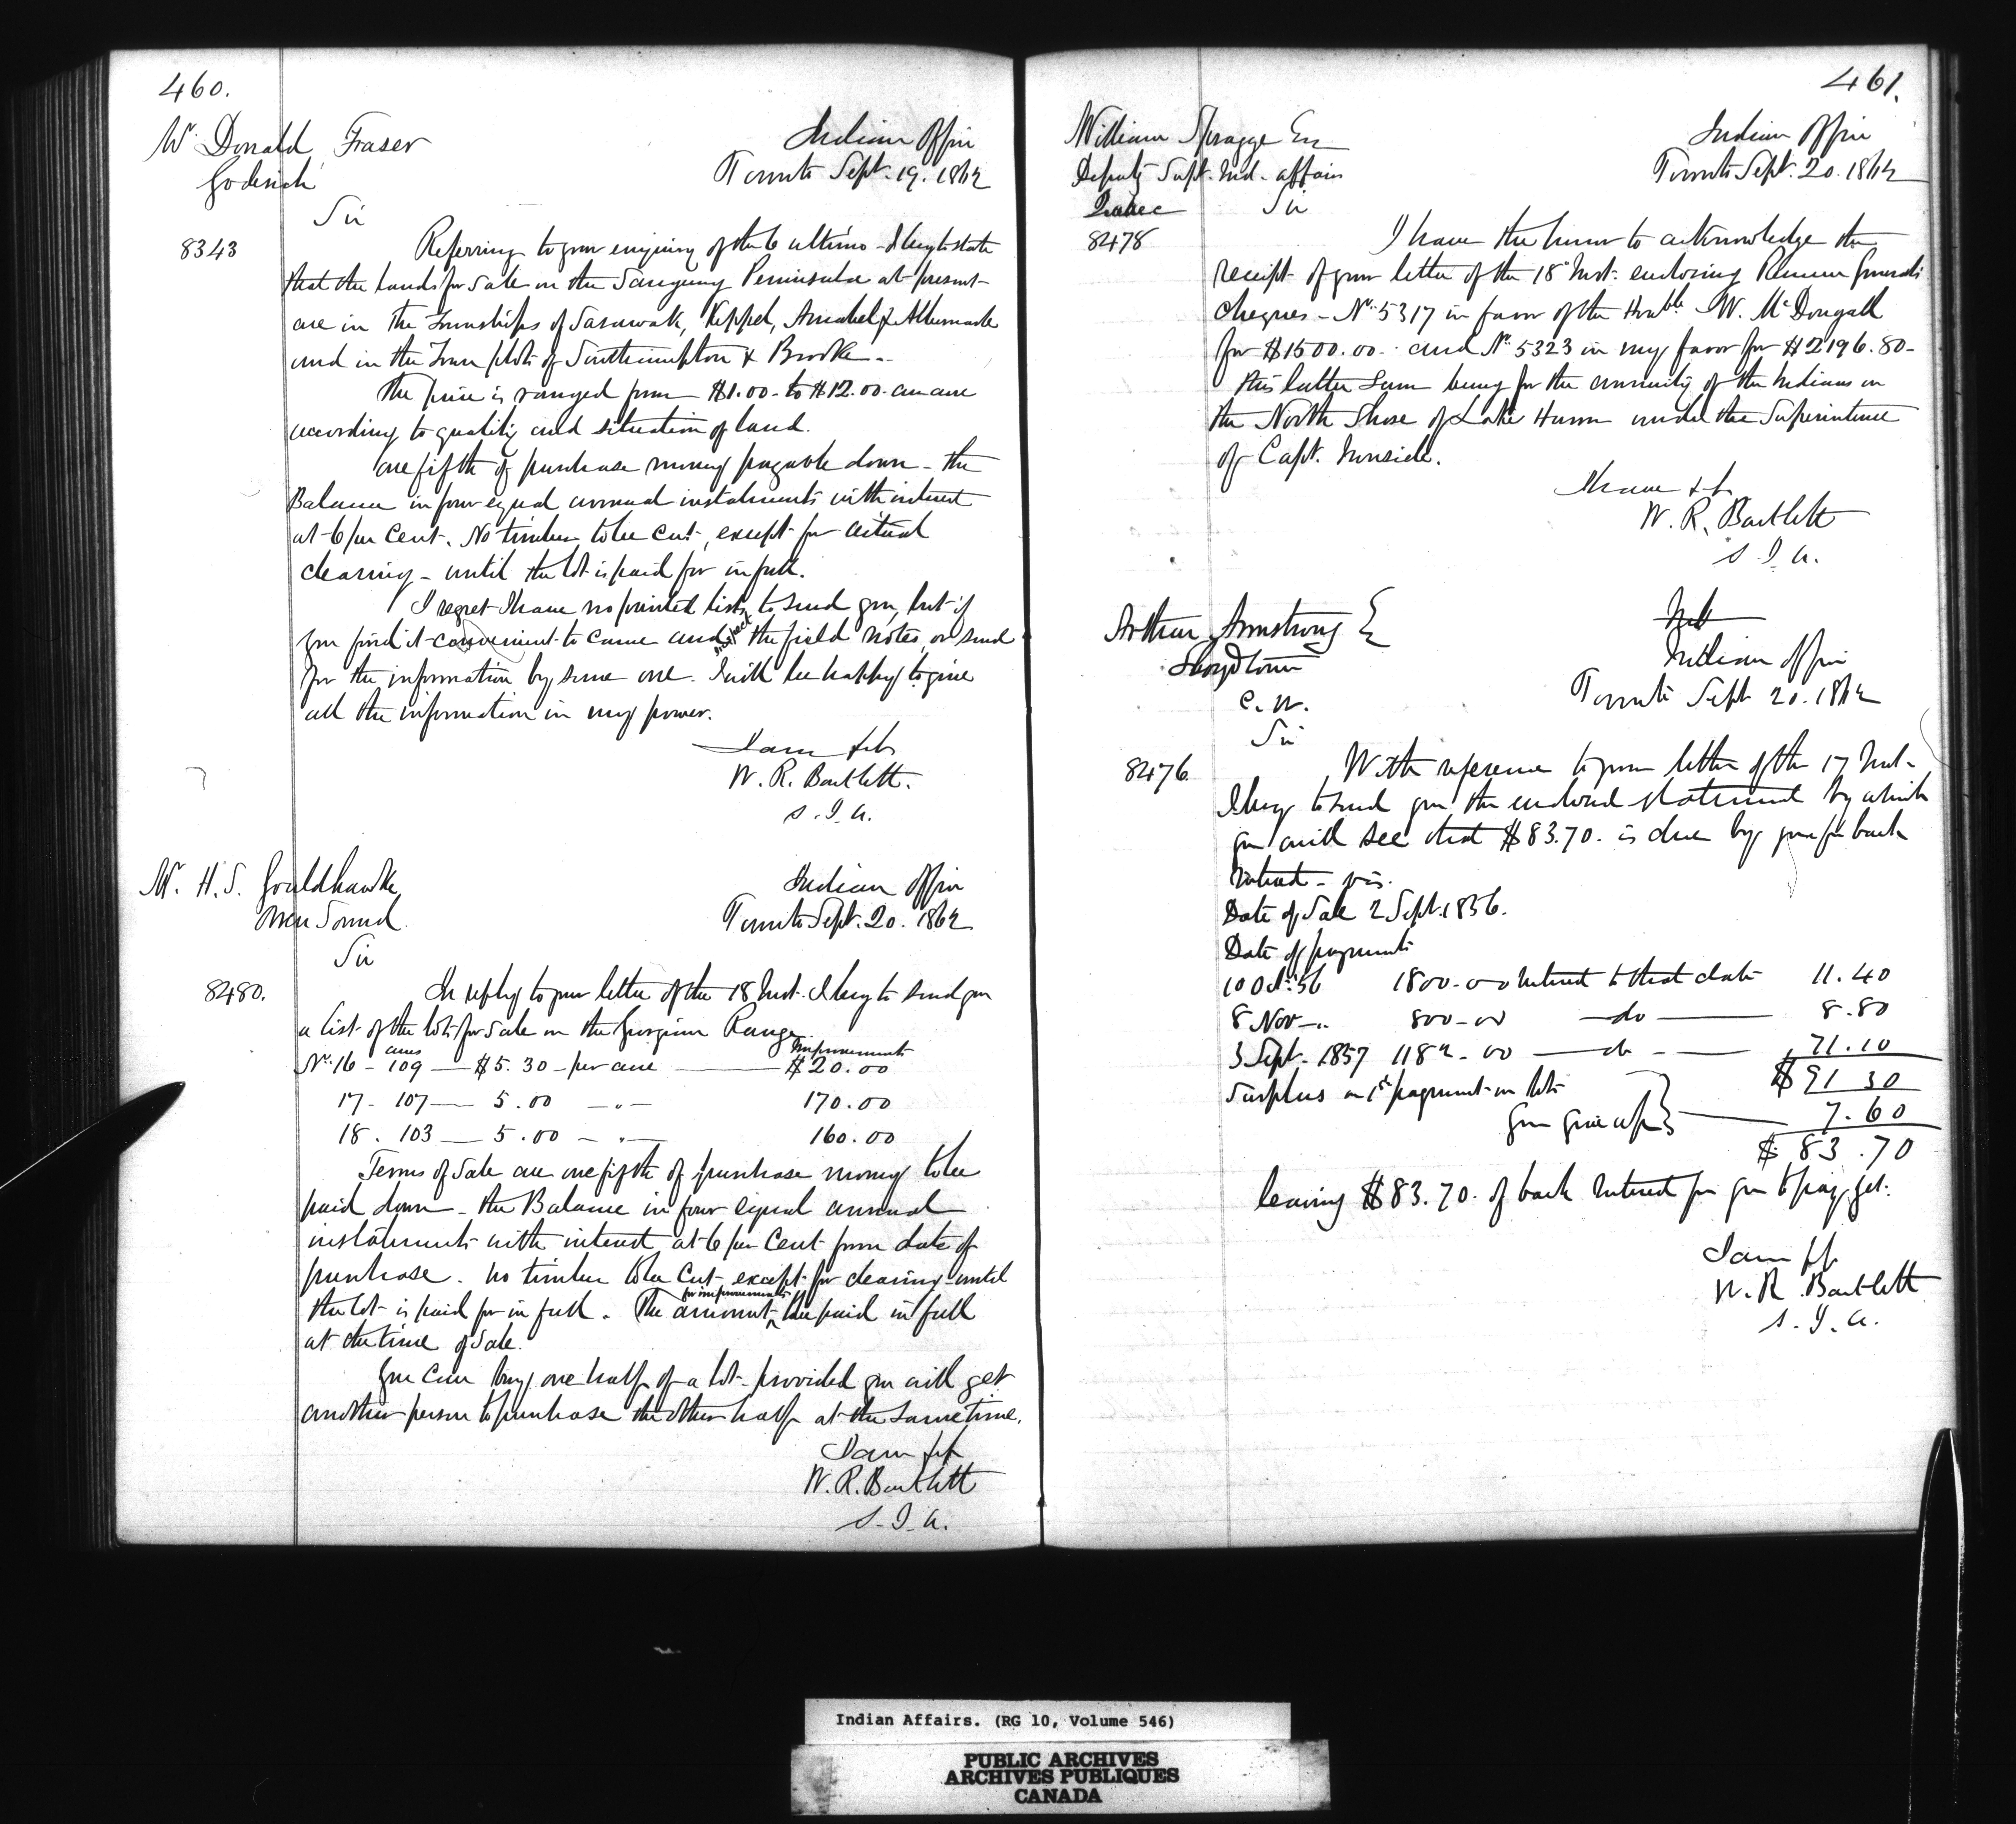 460.
Mr. Donald Fraser
Goderich
Indian Office
Toronto Sept. 19. 1862
Sir
8343
Referring to your enquiry of the 6 ultimo - I beg to state
that the lands for Sale on the Saugeeng Peninsula at present
are in the Townships of Sarawak, Keppel, Amabel & Albemarle
and in the Town plots of Southampton & Brooke.
The price is ranged from $1.00. to $12.00. an acre
according to quality and situation of land.
one fifth of purchase money payable down - the
Balance in four equal annual instalments with interest
at 6 per Cent. No timber to be cut, except for actual
clearing - until the lot is paid for in full.
I regret I have no printed lists to send you, but if
you find it convenient to come and inspect the field notes, or send
for the information by some one. I will be happy to give
all the information in my power.
I am &c
W. R. Bartlett.
S. I. A.
Mr. H. S. Gouldhawke
Owen Sound.
Indian Office
Toronto Sept. 20. 1862
Sir
8480.
In reply to your letter of the 18 Inst. I beg to send you
a list of the lots for Sale on the Georgian Range.
acres Improvements
No. 16 - 109 — $5.30 - per acre — $20.00
17 - 107 — 5.00 — " — 170.00
18. 103 — 5.00 — " — 160.00
Terms of Sale are one fifth of purchase money to be
paid down - the Balance in four equal annual
instalments with interest at 6 per Cent from date of
purchase. no timber to be Cut, except for clearing until
the lot is paid for in full. The amount ^for improvements to be paid in full
at the time of Sale.
You Can buy one half of a lot - provided you will get
another person to purchase the other half at the same time.
I am &c
W. R. Bartlett
S. I. A.
461.
William Spragge Esq
Deputy Supt. Ind. affairs
Quebec
Indian Office
Toronto Sept. 20. 1862
Sir
8478
I have the honor to acknowledge the
receipt of your letter of the 18 Inst. enclosing Receiver Generals
cheques - No. 5317 in favor of the Honble. W. McDougall
for $1500.00. and No. 5323 in my favor for $2196.80 -
this latter Sum being for the annuity of the Indians on
the North Shore of Lake Huron under the Superintence
of Capt. Ironside.
I have &c
W. R. Bartlett
S. I. A.
Arthur Armstrong E
Lloydtown
C. W.
Ind
Indian Office
Toronto Sept 20. 1862
Sir
8476.
With reference to your letter of the 17 Inst -
I beg to send you the enclosed statement by which
you will see that $83.70. is due by you for back
Interest - vis.
Date of Sale 2 Sept. 1856.
Date of payments
10 Oct. 56 1800-00 Interest to that date 11.40
8 Nov - .. 800-00 — do — 8.80
3 Sept. 1857 1182-00 — do — 71.10
$91 30
Surplus on 1st payment on lots
you give up } — 7.60
$83.70
leaving $83.70. of back Interest for you to pay yet.
I am &c
W. R. Bartlett
S. I. A.
Indian Affairs. (RG 10, Volume 546)
PUBLIC ARCHIVES
ARCHIVES PUBLIQUES
CANADA